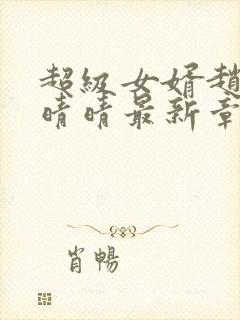 超級女婿趙
晴晴最新章
肖暢